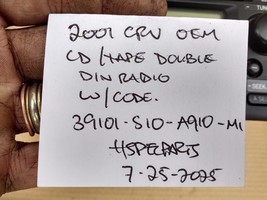 2001 CRV OEM
CD/TAPE DOUBLE
DIN RADIO
W/CODE.
39101-S10-A910-M1
HSPECPARTS
7-25-2025